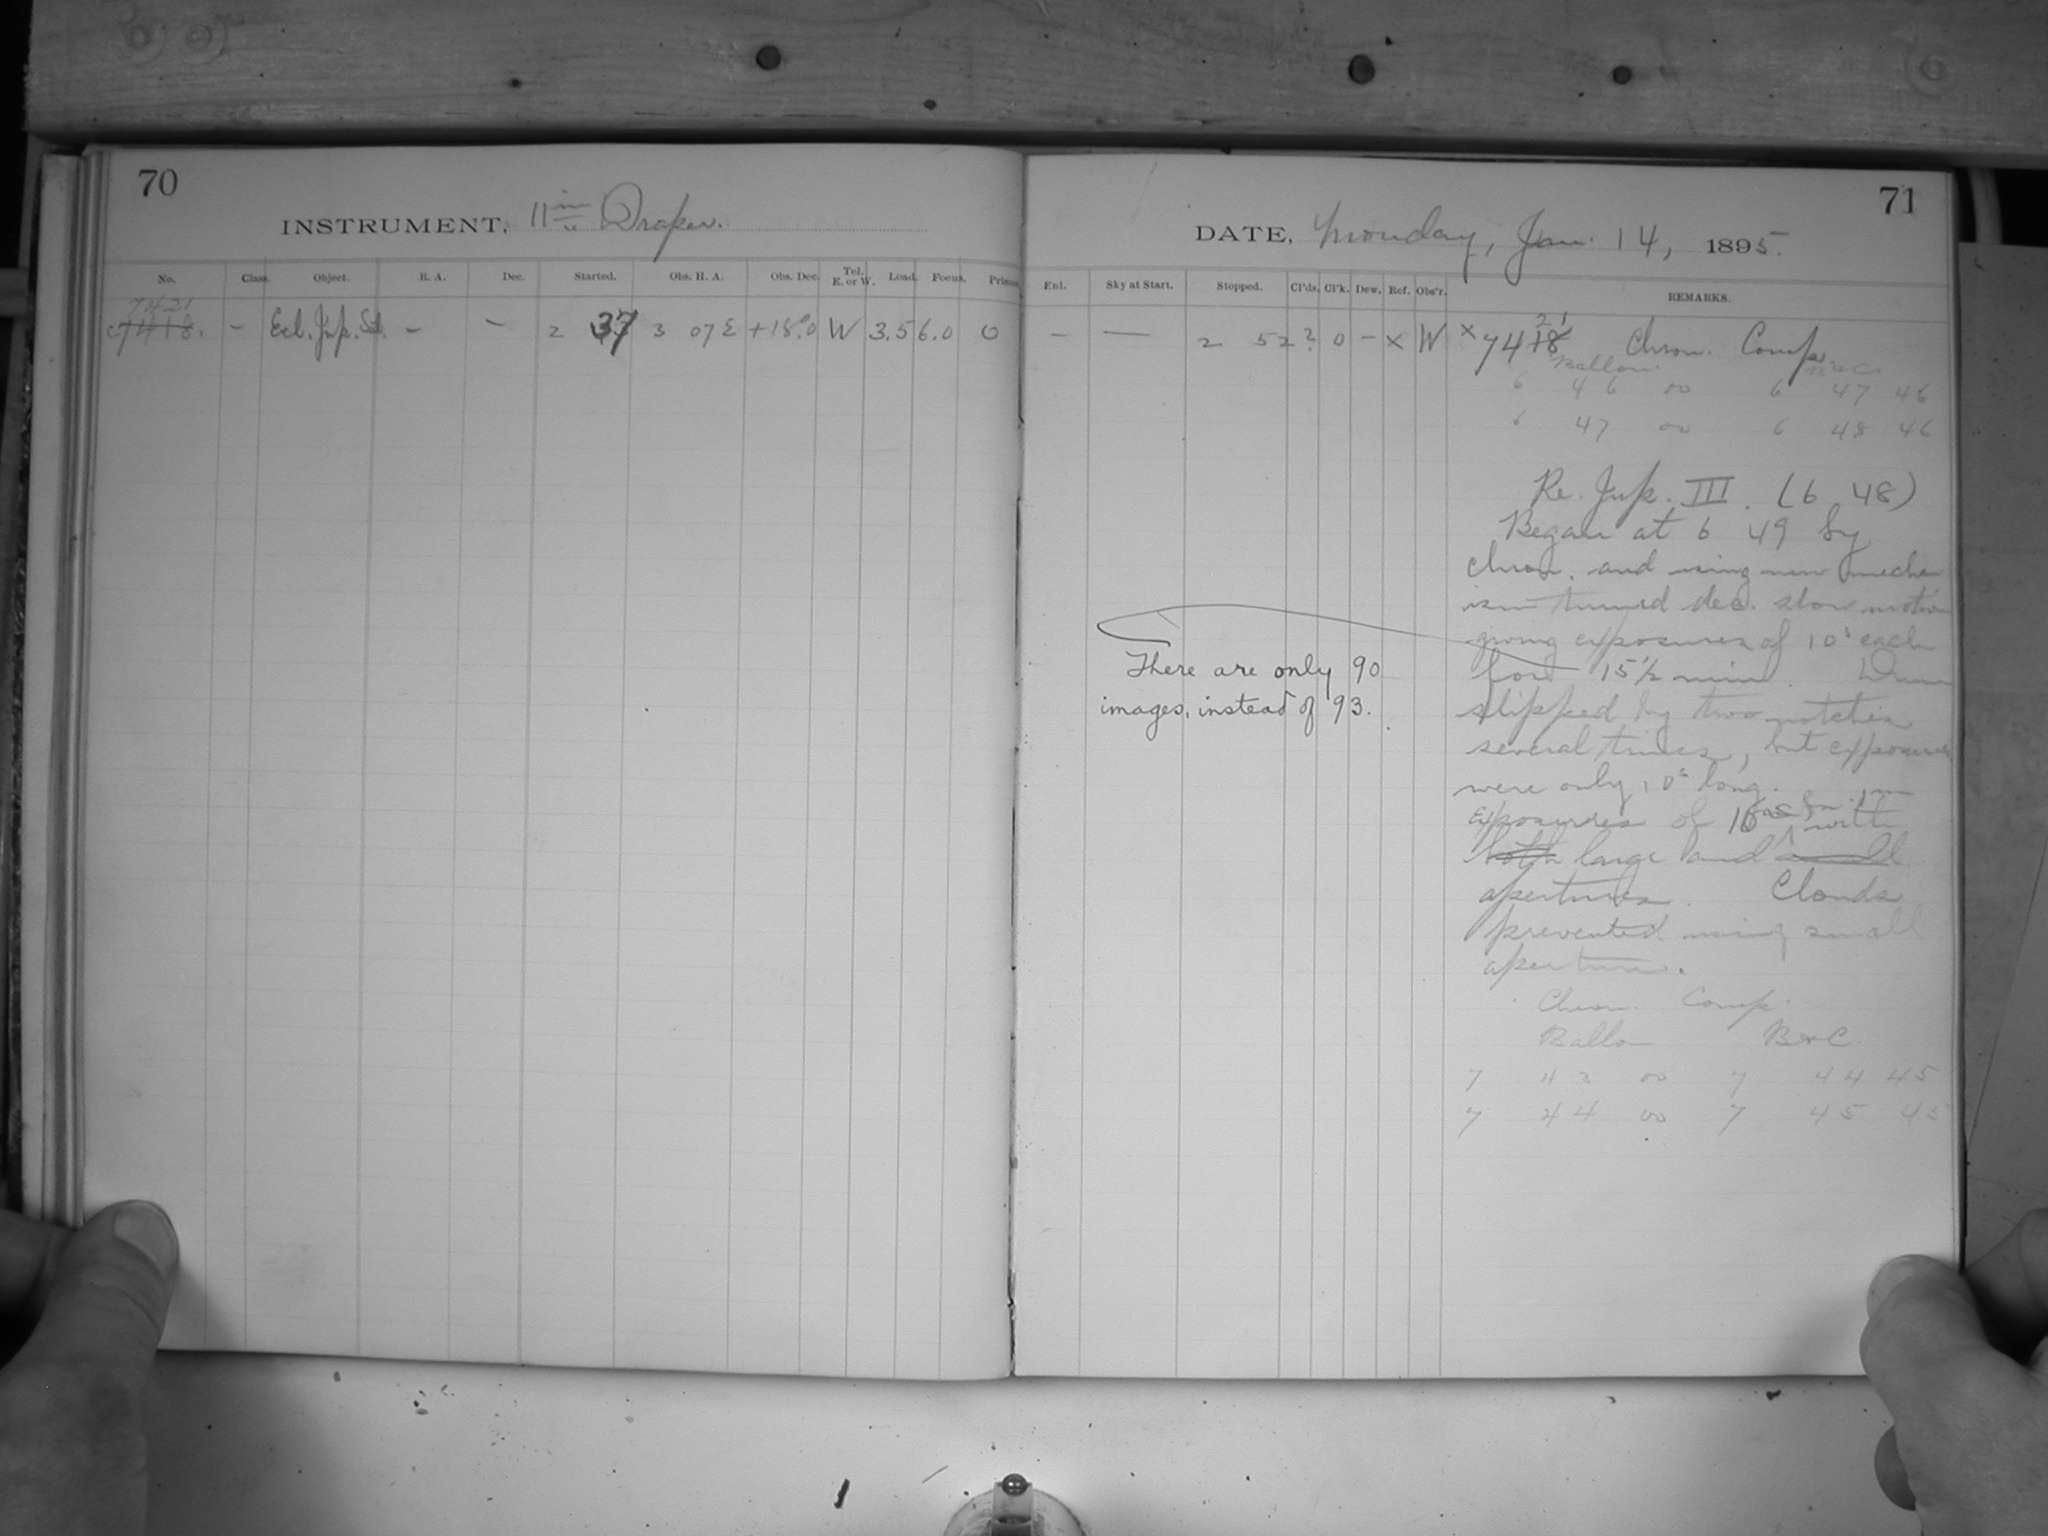 70
INSTRUMENT, 11 in Draper.
No. Class. Object. R. A. Dec. Started. Obs. H. A. Obs. Dec. Tel. E. or W. Load. Focus. Prisms
7421
c7418. – Ecl. Jup. Sat. – – 2 37 3 07 E +18°.0 W 3.5 6.0 0
71
DATE, Monday, Jan. 14, 1895.
Enl. Sky at Start. Stopped. Cl'ds. Cl'k. Dew. Ref. Obs'r. REMARKS.
– — 2 52 2? 0 – x W x 7418 21 Chron. Comp.
Ballou B & C
6 46 00 6 47 46
6 47 00 6 48 46
Re. Jup. III. (6 48)
Began at 6 49 by
chron. and using new mechan
ism turned dec. slow motion
giving exposures of 10s each
for 15 1/2 min.
There are only 90
images, instead of 93.
slipped by two notches
several times, but exposures
were only 10s long.
Exposures of 10 with
both large and small
apertures. Clouds
prevented using small
aperture.
Chron. Comp.
Ballou B & C.
7 43 00 7 44 45
7 44 00 7 45 45